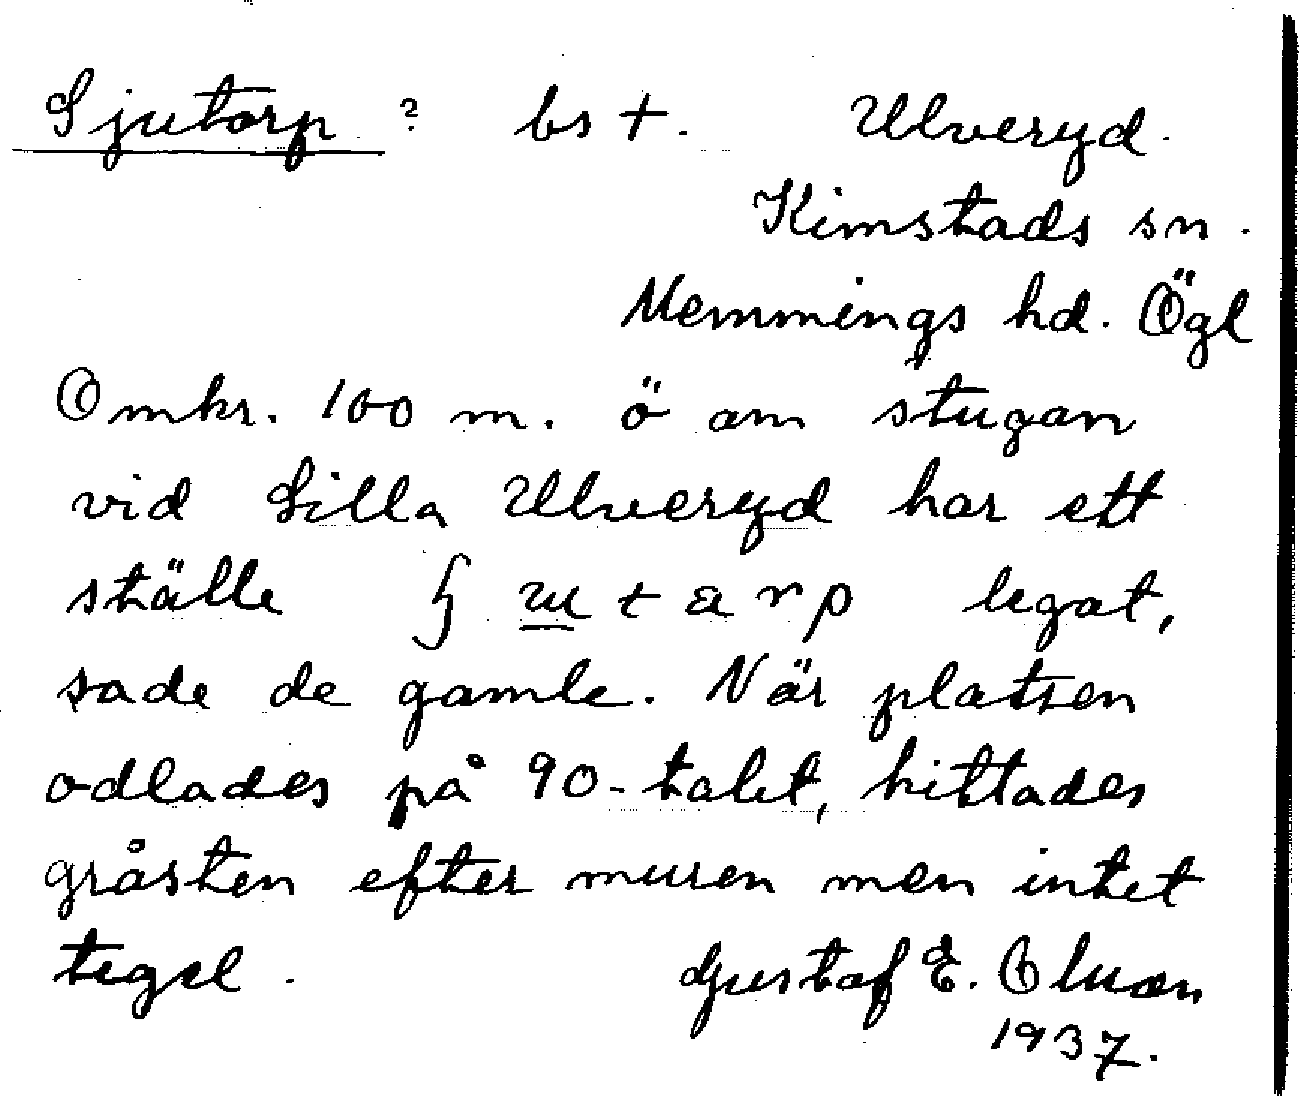 Sjutorp ? bs +. Ulveryd.
Kimstads sn.
Memmings hd. Ögl
Omkr. 100 m. ö om stugan
vid Lilla Ulveryd har ett
ställe ʃ u t a r p legat,
sade de gamle. När platsen
odlades på 90-talet, hittades
gråsten efter muren men intet
tegel. Gustaf E. Olsson
1937.